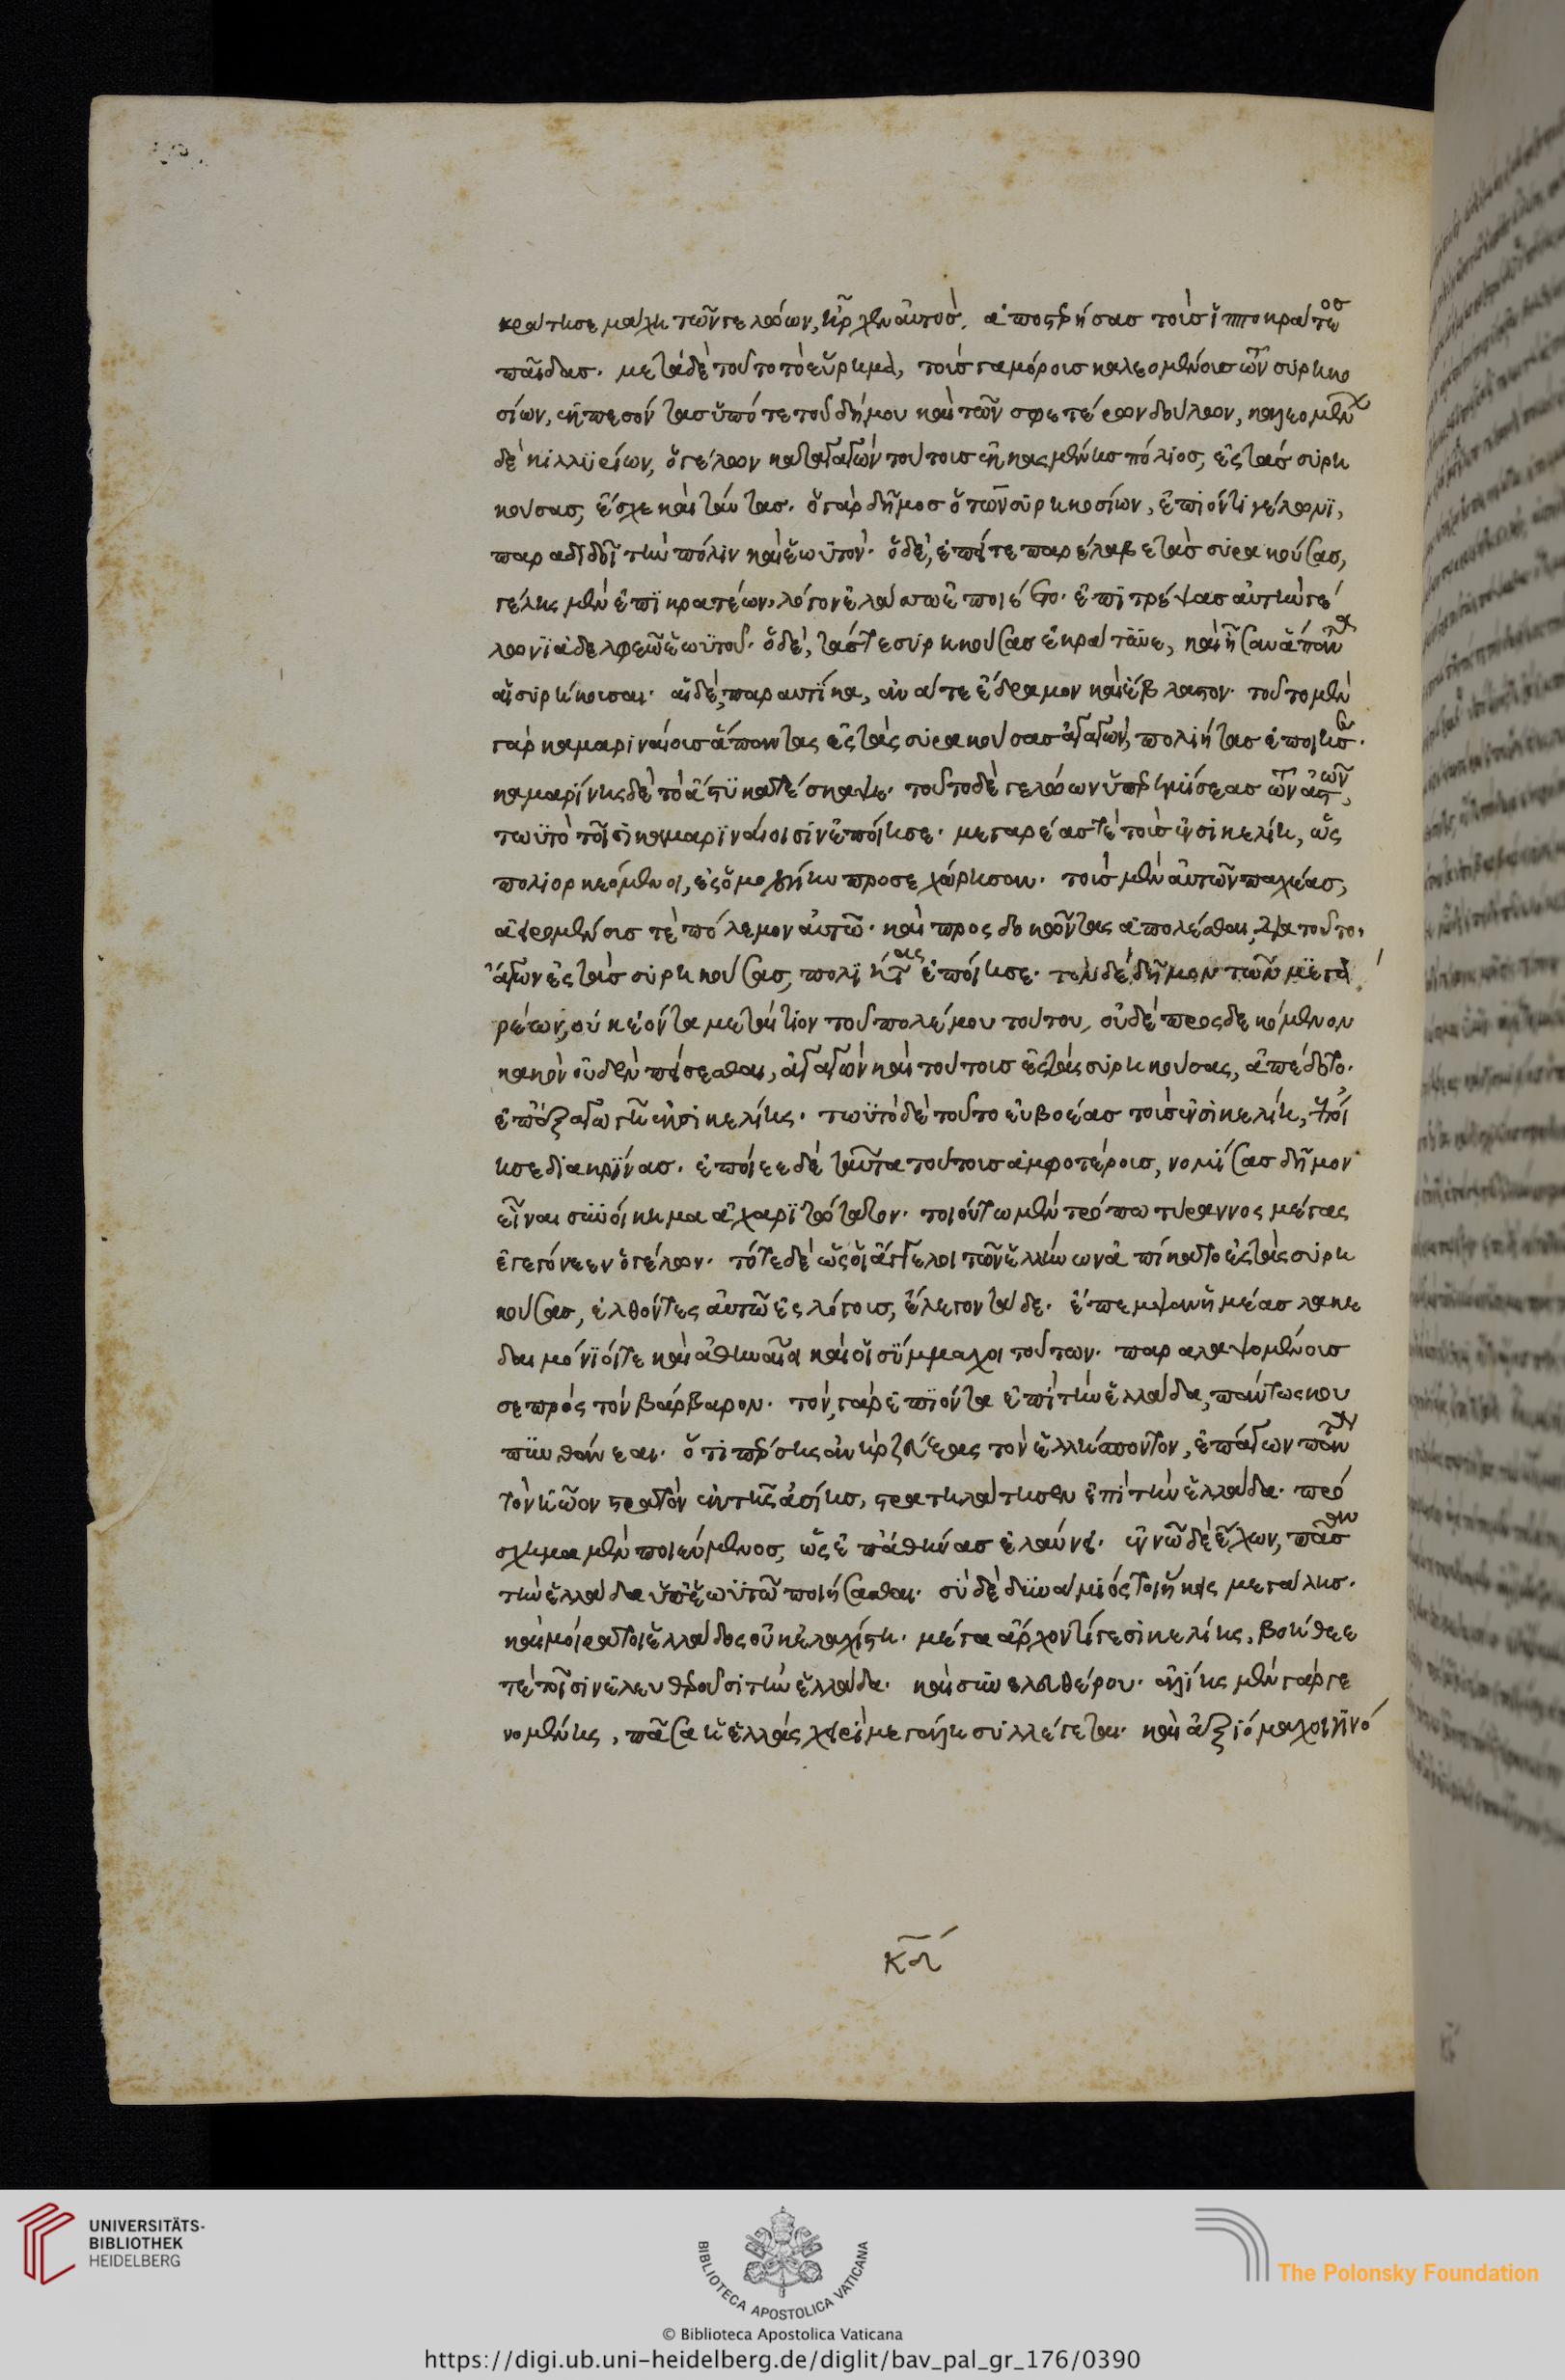 κράτησε μάχη τῶν γελώων, ἦρχεν αὐτὸς, ἀποστερήσας τοὺς ἱπποκράτεος
παῖδας. μετὰ δὲ τοῦτο τὸ εὕρημα, τοὺς γαμόρους καλεομένους τῶν συρηκο
σίων, ἐκπεσόντας ὑπό τε τοῦ δήμου καὶ τῶν σφετέρων δούλων, καλεομένων
δὲ κιλλυρίων, ὁ γέλων καταγαγὼν τούτους ἐκ κασμένης πόλιος, ἐς τὰς συρη
κούσας, ἔσχε καὶ ταύτας. ὁ γὰρ δῆμος ὁ τῶν συρηκοσίων, ἐπιόντι γέλωνι,
παραδιδοῖ τὴν πόλιν καὶ ἑωυτόν. ὁ δὲ, ἐπείτε παρέλαβε τὰς συρακούσας,
γέλης μὲν ἐπικρατέων, λόγον ἐλάσσω ἐποιέετο. ἐπιτρέψας αὐτὴν γέ
λωνι ἀδελφεῶ ἑωυτοῦ. ὁ δὲ, τάς τε συρηκούσας ἐκράτυνε, καὶ ἦσαν ἅπαντα
αἱ συρήκουσαι. αἱ δὲ, παραυτίκα, ἀνά τε ἔδραμον καὶ ἔβλαστον. τοῦτο μὲν
γὰρ καμαριναίους ἅπαντας ἐς τὰς συρακούσας ἀγαγὼν, πολιήτας ἐποίησε.
καμαρίνης δὲ τὸ ἄστυ κατέσκαψε. τοῦτο δὲ γελώων ὑπερημίσεας τῶν ἀστῶν,
τωυτὸ τοῖσι καμαριναίοισιν ἐποίησε. μεγαρέας τὲ τοὺς ἐν σικελίη, ὡς
πολιορκεόμενοι, ἐς ὁμολογίην προσεχώρησαν. τοὺς μὲν αὐτῶν παχέας,
ἀειρομένους τὲ πόλεμον αὐτῶ. καὶ προσδοκῶντας ἀπολέσθαι διὰ τοῦτο,
ἄγων ἐς τὰς συρηκούσας, πολιήτας ἐποίησε. τὸν δὲ δῆμον τῶν μεγα
ρέων, οὐκ ἐόντα μεταίτιον τοῦ πολέμου τούτου, οὐδὲ προσδεκόμενον
κακὸν οὐδὲν πείσεσθαι, ἀγαγὼν καὶ τούτους ἐς τὰς συρηκούσας, ἀπέδοτο.
ἐπ' ἐξαγωγῆ ἐκ σικελίης. τωυτὸ δὲ τοῦτο εὐβοέας τοὺς ἐν σικελίη, ἐποί
ησε διακρίνας. ἐποίεε δὲ ταῦτα τούτους ἀμφοτέρους, νομίσας δῆμον
εἶναι συνοίκημα ἀχαριτώτατον. τοιούτω μὲν τρόπω τύραννος μέγας
ἐγεγόνεεν ὁ γέλων. τότε δὲ ὡς οἱ ἄγγελοι τῶν ἑλλήνων ἀπίκατο ἐς τὰς συρη
κούσας, ἐλθόντες αὐτῶ ἐς λόγους, ἔλεγον τάδε. ἔπεμψαν ἡμέας λακε
δαιμόνιοί τε καὶ ἀθηναῖοι καὶ οἱ σύμμαχοι τούτων. παραλαψομένους
σε πρὸς τὸν βάρβαρον. τὸν γὰρ ἐπιόντα ἐπὶ τὴν ἑλλάδα, πάντως κου
πυνθάνεαι. ὅτι πέρσης ἀνὴρ ζεύξας τὸν ἑλλήσποντον, ἐπάγων πάντα
τὸν ἠῶον στρατὸν ἐκ τῆς ἀσίης, στρατηλατήσειν ἐπὶ τὴν ἑλλάδα. πρό
σχημα μὲν ποιεύμενος, ὡς ἐπ' ἀθήνας ἐλαύνει. ἐν νῶ δὲ ἔχων, πᾶσαν
τὴν ἑλλάδα ὑπ' ἑωυτῶ ποιήσασθαι. σὺ δὲ δυνάμιός τοι ἥκεις μεγάλης.
καὶ μοῖρά τοι ἑλλάδος οὐκ ἐλαχίστη. μέτα ἄρχοντί γε σικελίης, βοήθεέ
τὲ τοῖσιν ἐλευθεροῦσι τὴν ἑλλάδα. καὶ συνελευθέρου. ἁλίης μὲν γὰρ γε
νομένης, πᾶσα ἡ ἑλλὰς χεὶρ μεγάλη συλλέγεται. καὶ ἀξιόμαχοι γινό
UNIVERSITÄTS-
BIBLIOTHEK
HEIDELBERG
BIBLIOTECA APOSTOLICA VATICANA
© Biblioteca Apostolica Vaticana
The Polonsky Foundation
https://digi.ub.uni-heidelberg.de/diglit/bav_pal_gr_176/0390